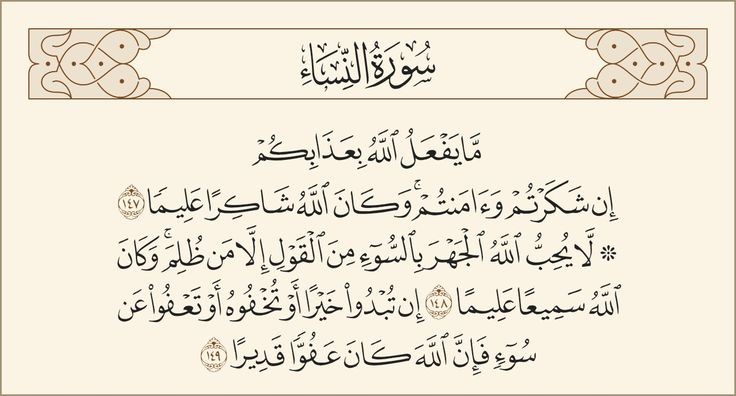 سُورَةُ النِّسَاءِ
مَّا يَفْعَلُ ٱللَّهُ بِعَذَابِكُمْ
إِن شَكَرْتُمْ وَءَامَنتُمْ ۚ وَكَانَ ٱللَّهُ شَاكِرًا عَلِيمًا ١٤٧
۞ لَّا يُحِبُّ ٱللَّهُ ٱلْجَهْرَ بِٱلسُّوٓءِ مِنَ ٱلْقَوْلِ إِلَّا مَن ظُلِمَ ۚ وَكَانَ
ٱللَّهُ سَمِيعًا عَلِيمًا ١٤٨ إِن تُبْدُوا۟ خَيْرًا أَوْ تُخْفُوهُ أَوْ تَعْفُوا۟ عَن
سُوٓءٍ فَإِنَّ ٱللَّهَ كَانَ عَفُوًّا قَدِيرًا ١٤٩